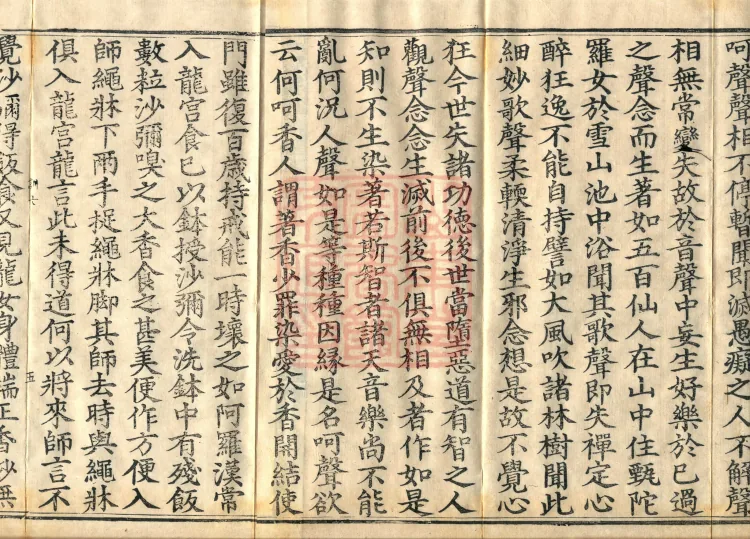 呵聲聲相不停暫聞即滅愚癡之人不解聲
相無常變失故於音聲中妄生好樂於已過
之聲念而生著如五百仙人在山中住甄陀
羅女於雪山池中浴聞其歌聲即失禪定心
醉狂逸不能自持譬如大風吹諸林樹聞此
細妙歌聲柔輭清淨生邪念想是故不覺心
狂今世失諸功德後世當墮惡道有智之人
觀聲念念生滅前後不俱無相及者作如是
知則不生染著若斯智者諸天音樂尚不能
亂何況人聲如是等種種因緣是名呵聲欲
云何呵香人謂著香少罪染愛於香開結使
門雖復百歲持戒能一時壞之如阿羅漢常
入龍宮食已以鉢授沙彌令洗鉢中有殘飯
數粒沙彌嗅之大香食之甚美便作方便入
師繩牀下兩手捉繩牀脚其師去時與繩牀
俱入龍宮龍言此未得道何以將來師言不
五
覺沙彌得飯食又見龍女身體端正香妙無